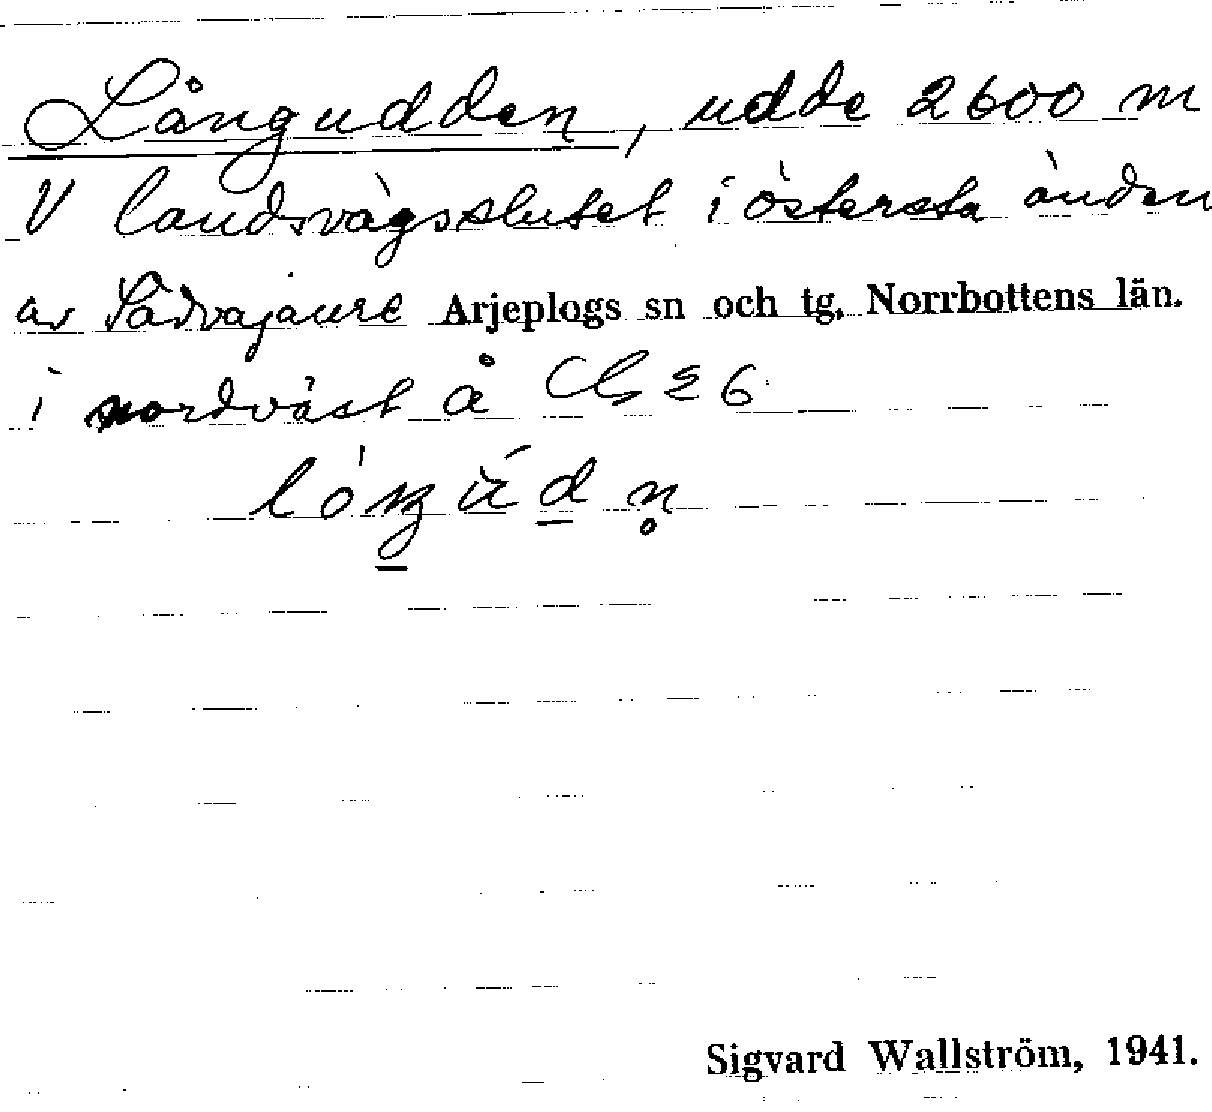 Långudden, udde 2600 m
V landsvägsslutet i östersta änden
av Sädvajaure Arjeplogs sn och tg, Norrbottens län.
i nordväst å
Sigvard Wallström, 1941.